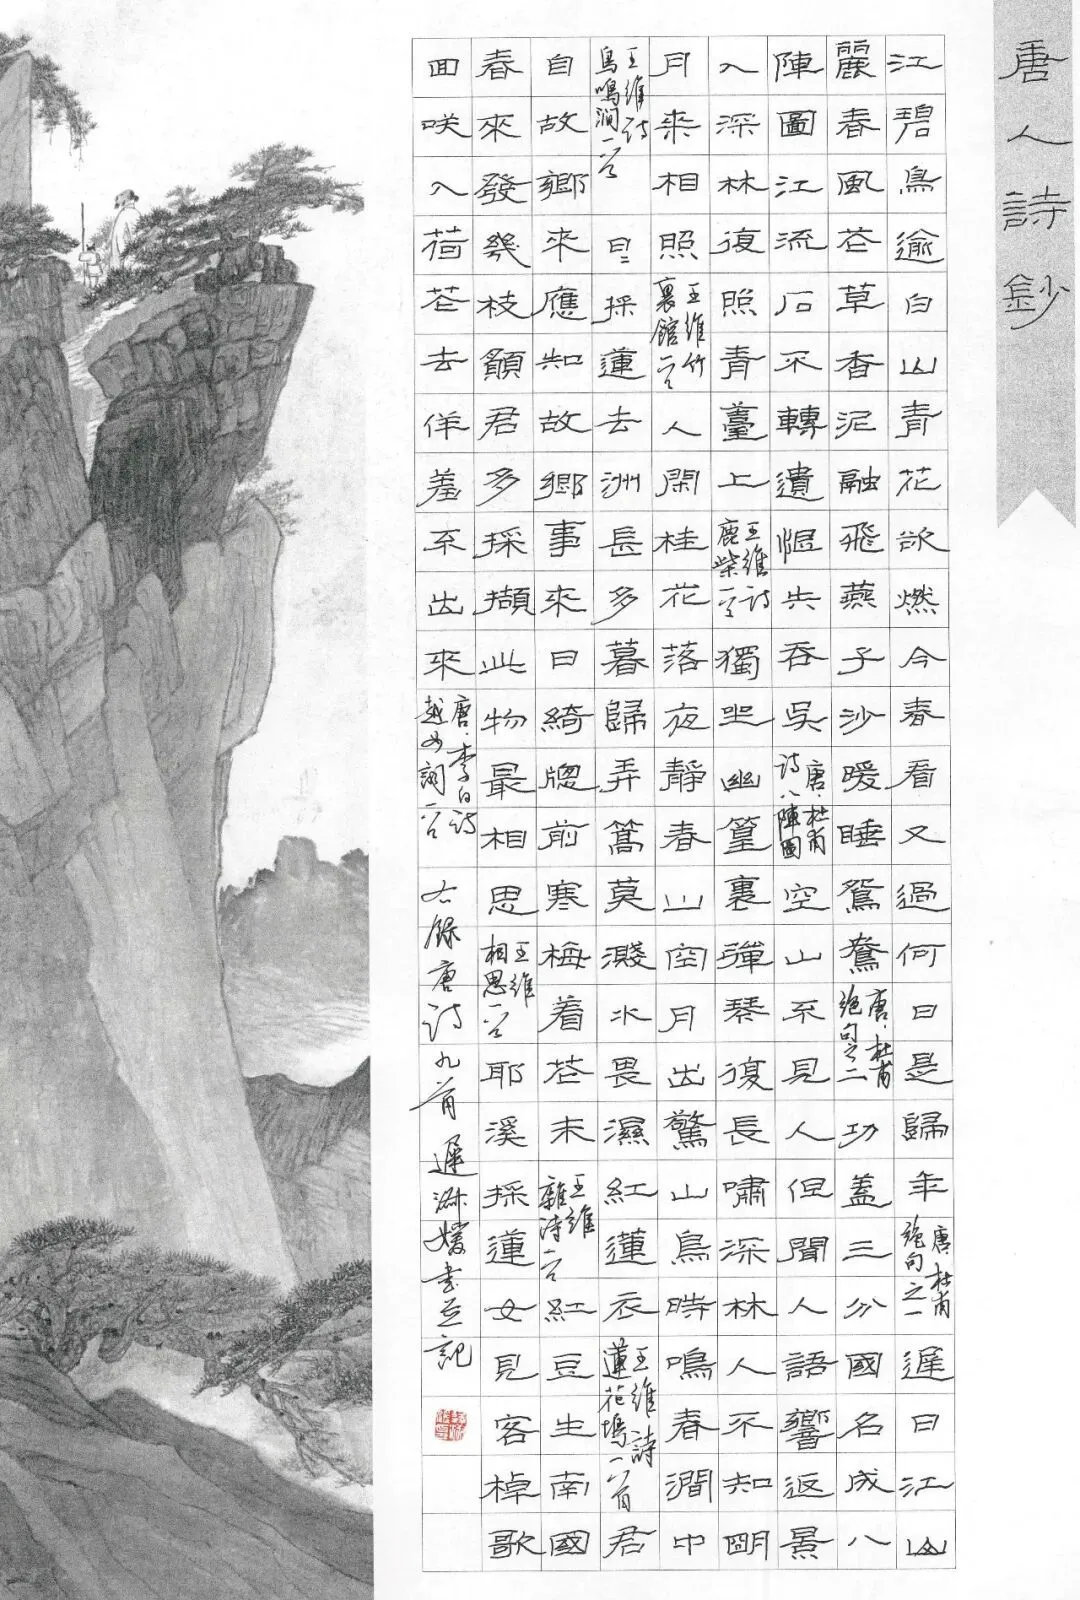 唐人詩鈔
江碧鳥逾白山青花欲燃今春看又過何日是歸年唐·杜甫絕句之一遲日江山
麗春風花草香泥融飛燕子沙暖睡鴛鴦唐·杜甫絕句之二功蓋三分國名成八
陣圖江流石不轉遺恨失吞吳唐·杜甫詩八陣圖空山不見人但聞人語響返景
入深林復照青薹上王維詩鹿柴一首獨坐幽篁裏彈琴復長嘯深林人不知明
月来相照王維竹裏館一首人閑桂花落夜靜春山空月出驚山鳥時鳴春澗中
王維詩鳥鳴澗一首日日採蓮去洲長多暮歸弄篙莫濺水畏濕紅蓮衣王維詩蓮花塢一首君
自故鄉來應知故鄉事來日綺牕前寒梅着花未王維雜詩一首紅豆生南國
春來發幾枝願君多採擷此物最相思王維相思一首耶溪採蓮女見客棹歌
回咲入荷花去佯羞不出來唐·李白詩越女詞一首右錄唐詩九首遲媛書並記